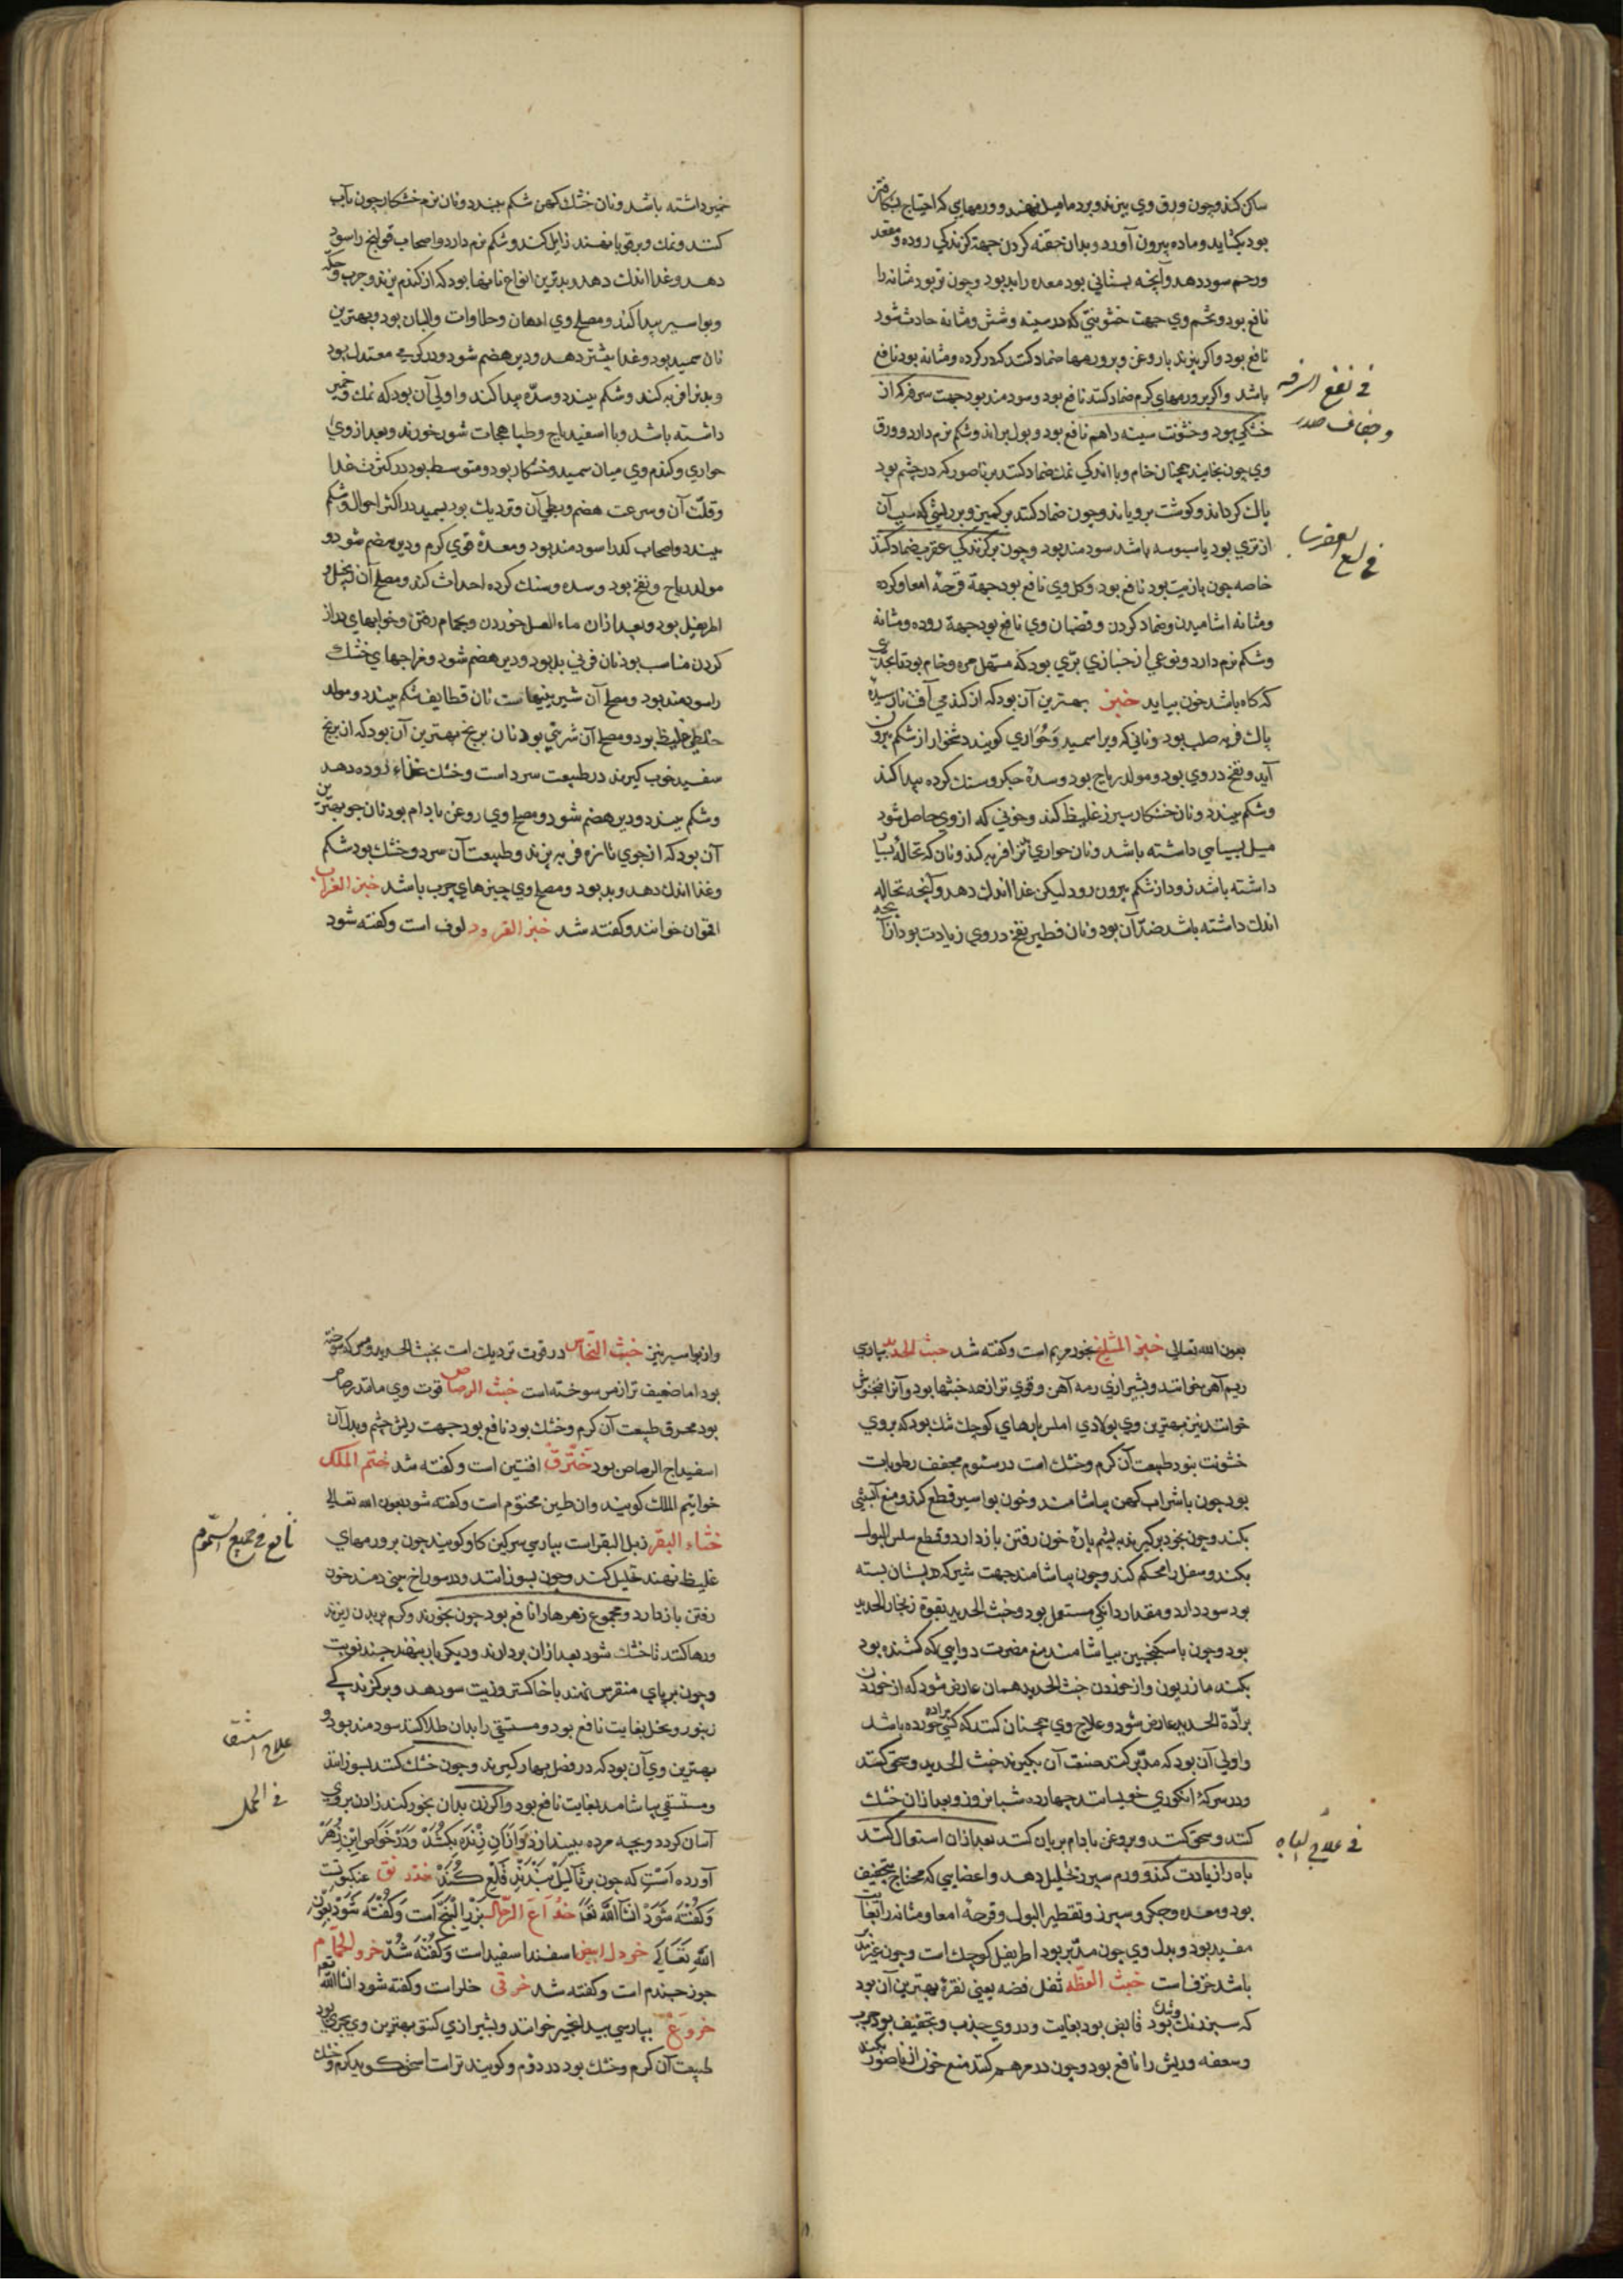 ساکن کند و چون ورق وی بپزند و بر دمامیل نهند و ورمهای که احتیاج بشکافتن
بود بکشاید و ماده بیرون آورد و بدان حقنه کردن جهة کزندکی روده و مقعد
و رحم سود دهد و آنچه بستانی بود معده را بد بود و چون تر بود مثانه را
نافع بود و تخم وی جهت خشونتی که در سینه و شش و مثانه حادث شود
نافع بود و اکر بپزند با روغن و بر ورمها ضماد کنند که در کرده و مثانه بود نافع
باشد و اکر بر ورمهای کرم ضماد کنند نافع بود و سودمند بود جهت سرفه که از
خشکی بود و خشونت سینه را هم نافع بود و بول براند و شکم نرم دارد و ورق
وی چون بخایند همچنان خام و با اندکی نمک ضماد کنند بر ناصور که در چشم بود
پاک کرداند و کوشت برویاند و چون ضماد کنند بر کمیز و بر ریشی که سبب آن
از تری بود یا سبوسه باشد سودمند بود و چون بر کزندکی عقرب ضماد کنند
خاصه چون با زیت بود نافع بود و کل وی نافع بود جهة قرحهٔ امعا و کرده
و مثانه اشامیدن و ضماد کردن و قضبان وی نافع بود جهة روده و مثانه
و شکم نرم دارد و نوعی از خبازی بری بود که مسهل مره و خام بود تا بحدی
که کاه باشد خون بیاید خبز بهترین آن بود که از کندمی آفت نارسیده
پاک فربه صلب بود و نانی که ویرا سمید و حواری کویند دشخوار از شکم بیرون
آید و نفخ در وی بود و مولد ریاح بود و سدهٔ جکر و سنک کرده پیدا کند
و شکم ببندد و نان خشکار سپرز غلیظ کند و خونی که از وی حاصل شود
میل بسیاهی داشته باشد و نان حواری تن را فربه کند و نان که نخاله بسیار
داشته باشد زود از شکم بیرون رود لیکن غذا اندک دهد و آنچه نخاله
اندک داشته باشد ضد آن بود و نان فطیر نفخ در وی زیادت بود از آنچه
فی نفع السرفه
و جفاف صدر
فی لسع العقرب
خمیر داشته باشد و نان خشک کهن شکم ببندد و نان نرم خشکار چون بآب
کنند و نمک و برقوبا نهند زایل کند و شکم نرم دارد و اصحاب قولنج را سود
دهد و غذا اندک دهد و بدترین انواع نانها بود که از کندم پزند و جرب و حکه
و بواسیر پیدا کند و مصلح وی ادهان و حلاوات و البان بود و بهترین
نان سمید بود و غذا بیشتر دهد و دیر هضم شود و در کرمی معتدل بود
و بدن را فربه کند و شکم ببندد و سده پیدا کند و اولی آن بود که نمک و خمیر
داشته باشد و با اسفیدباج و طباهجات شور خورند و بعد از وی
حواری و کندم وی میان سمید و خشکار بود و متوسط بود در کثرت غذا
و قلت آن و سرعت هضم و بطی آن و نزدیک بود بسمید در اکثر احوال و شکم
ببندد و اصحاب کد را سودمند بود و معدهٔ قوی کرم و دیر هضم شود و
مولد ریاح و نفخ بود و سده و سنک کرده احداث کند و مصلح آن
اطریفل بود و بعد از ان ماء العسل خوردن و بحمام رفتن و خوابهای دراز
کردن مناسب بود نان فرنی بد بود و دیر هضم شود و مزاجهای خشک
را سودمند بود و مصلح آن شیرینیهاست نان قطایف شکم ببندد و مولد
خلطی غلیظ بود و مصلح آن شربتی بود نان برنج بهترین آن بود که از برنج
سفید خوب کیرند در طبیعت سرد است و خشک غذاء زود دهد
و شکم ببندد و دیر هضم شود و مصلح وی روغن بادام بود نان جو بهترین
آن بود که از جوی تازه فربه پزند و طبیعت آن سرد و خشک بود شکم
و غذا اندک دهد و بد بود و مصلح وی چیزهای چرب باشد خبز الغراب
اقحوان خوانند و کفته شد خبز القرود لوف است و کفته شود
بعون الله تعالی خبز المشایخ بخور مریم است و کفته شد خبث الحدید بپارسی
ریم آهن خوانند و بشیرازی رمه آهن و قوی تر از همه خبثها بود و آنرا
خوانند نیز بهترین وی پولادی املس پارهای کوچک تنک بود که بر وی
خشونت نبود طبیعت آن کرم و خشک است در سئوم مجفف رطوبات
بود چون با شراب کهن بیاشامند و خون بواسیر قطع کند و منع آبستنی
بکند و چون بخود برکیرند بپشم پارهٔ خون رفتن باز دارد و قطع سلس البول
بکند و سفل را محکم کند و چون بیاشامند جهت شیر که در پستان بسته
بود سود دارد و مقدار دانکی مستعمل بود و خبث الحدید بقوة زنجار الحدید
بود و چون با سکنجبین بیاشامند منع مضرت دوایی که کشنده بود
بکند مازریون و از خوردن خبث الحدید همان عارض شود که از خوردن
برادة الحدید عارض شود و علاج وی همچنان کنند که کسی براده خورده باشد
و اولی آن بود که مدبر کنند صنعت آن بکیرند خبث الحدید و سحق کنند
و در سرکهٔ انکوری خویسانند چهارده شبانروز و بعد از ان خشک
کنند و سحق کنند و بروغن بادام بریان کنند بعد از ان استعمال کنند
باه را زیادت کند و ورم سپرز تحلیل دهد و اعضایی که محتاج بتجفیف
بود و معده و جکر و سپرز و تقطیر البول و قرحهٔ امعا و مثانه را بغایت
مفید بود و بدل وی چون مدبر بود اطریفل کوچک است و چون غیر مدبر
باشد خزف است خبث الفضه ثفل فضه یعنی نقره بهترین آن بود
که سبز رنک بود و تنک قابض بود بغایت و در وی جذب و تجفیف بود جرب
و سعفه و ریش را نافع بود و چون در مرهم کنند منع خون از ناصور بکند
فی علاج الباه
و از بواسیر نیز خبث النحاس در قوت نزدیک است بخبث الحدید و مس که سوخته
بود اما ضعیف تر از مس سوخته است خبث الرصاص قوت وی مانند رصاص
بود محرق طبیعت آن کرم و خشک بود نافع بود جهت ریش چشم و بدل آن
اسفیداج الرصاص بود ختّرق افنتین است و کفته شد ختم الملک
خواتیم الملک کویند و ان طین مختوم است و کفته شود بعون الله تعالی
خثاء البقر زبل البقر است بپارسی سرکین کاو کویند چون بر ورمهای
غلیظ نهند تحلیل کند و چون بسوزانند و در سوراخ بینی دمند خون
رفتن باز دارد و مجموع زهرها را نافع بود چون بخورند و کرم بر بدن ریزند
و رها کنند تا خشک شود بعد از ان بردارند و دیکر باره بنهند چند نوبت
و چون بر پای منقرس نهند با خاکستر و زیت سود دهد و بر کزندکی
زنبور و نحل بغایت نافع بود و مستسقی را بدان طلا کنند سودمند بود و
بهترین وی آن بود که در فصل بهار کیرند و چون خشک کنند بسوزانند
و مستسقی بیاشامد بغایت نافع بود و اکر زن بدان بخور کند زادن بر وی
آسان کردد و بچه مرده بیندازد و از آن زنده بکشد و در خواص ابن زهر
آورده است که چون بر ثآلیل بندند قلع کند خدرنق عنکبوت
و کفته شود انشا الله تعا خداع الرجال بزر البنج است و کفته شود بعون
الله تعالی خردل ابیض اسفند اسفید است و کفته شد خرو الحمام
جوز جندم است و کفته شد خرقی خلر است و کفته شود انشا الله تعم
خروع بپارسی بیدانجیر خوانند و بشیرازی کنتو بهترین وی بحری بود
طبیعت آن کرم و خشک بود در دوم و کویند تر است اسحق کوید کرم و خشک
نافع فی جمیع السموم
علاج استسقا
فی الحمل